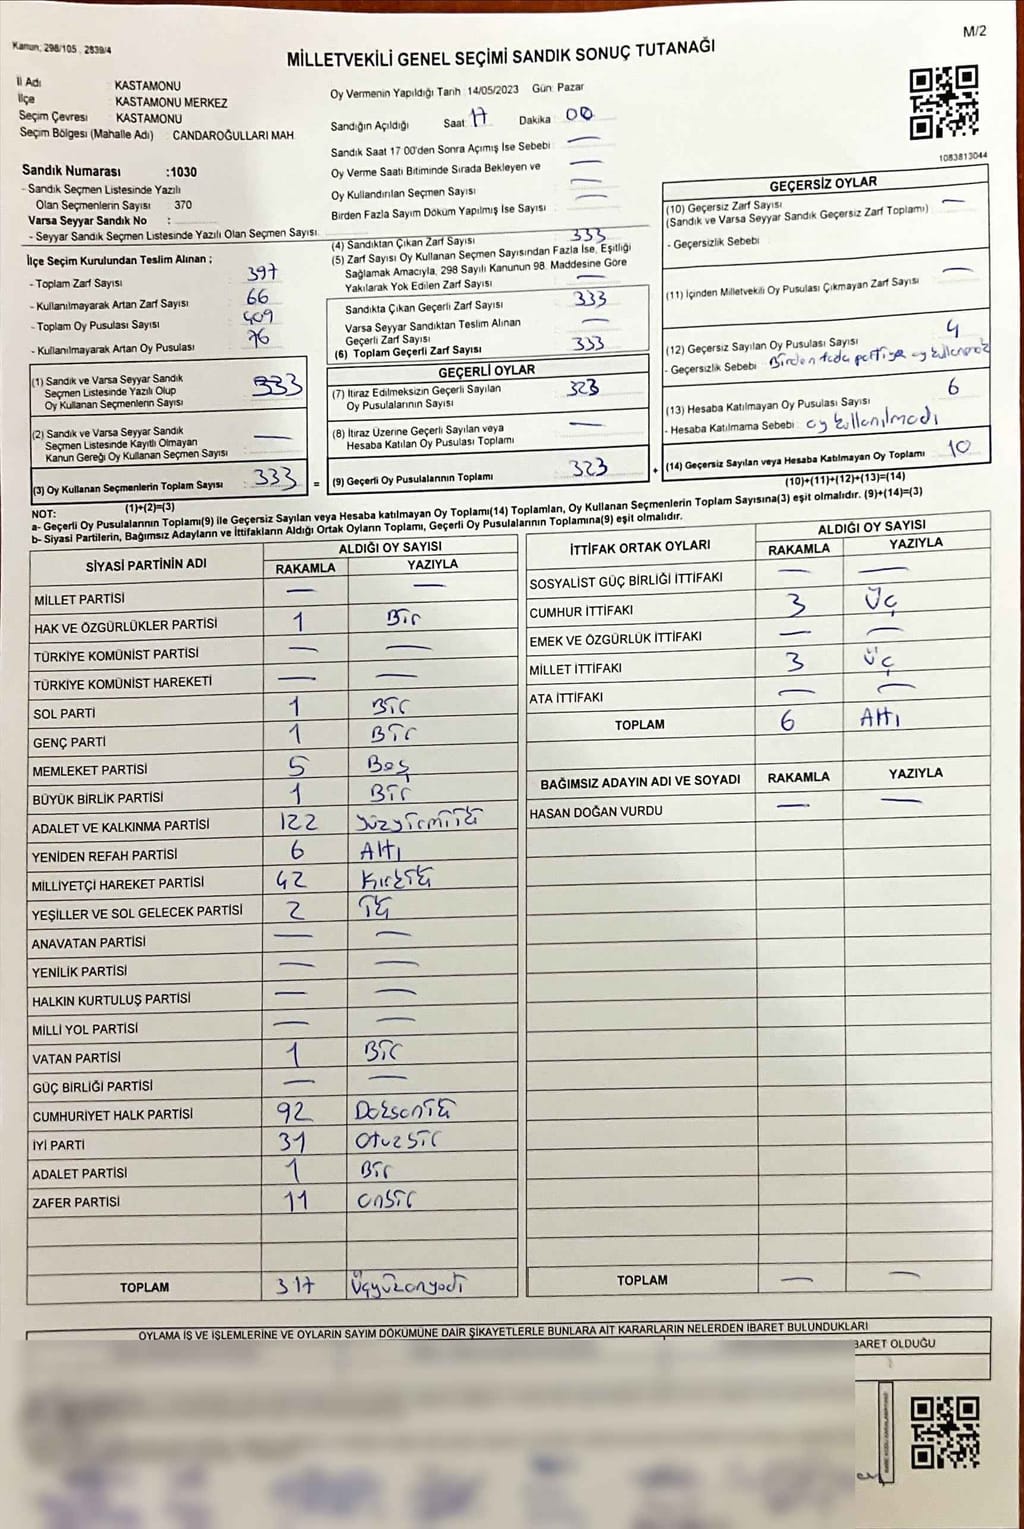 Kanun; 298/105 , 2839/4
M/2
MİLLETVEKİLİ GENEL SEÇİMİ SANDIK SONUÇ TUTANAĞI
İl Adı : KASTAMONU
İlçe : KASTAMONU MERKEZ
Seçim Çevresi : KASTAMONU
Seçim Bölgesi (Mahalle Adı) CANDAROĞULLARI MAH.
Sandık Numarası :1030
- Sandık Seçmen Listesinde Yazılı
Olan Seçmenlerin Sayısı 370
Varsa Seyyar Sandık No :
- Seyyar Sandık Seçmen Listesinde Yazılı Olan Seçmen Sayısı:
İlçe Seçim Kurulundan Teslim Alınan ;
- Toplam Zarf Sayısı 397
- Kullanılmayarak Artan Zarf Sayısı 66
- Toplam Oy Pusulası Sayısı 409
- Kullanılmayarak Artan Oy Pusulası 76
(1) Sandık ve Varsa Seyyar Sandık
Seçmen Listesinde Yazılı Olup
Oy Kullanan Seçmenlerin Sayısı 333
(2) Sandık ve Varsa Seyyar Sandık
Seçmen Listesinde Kayıtlı Olmayan
Kanun Gereği Oy Kullanan Seçmen Sayısı —
(3) Oy Kullanan Seçmenlerin Toplam Sayısı 333 =
(1)+(2)=(3)
Oy Vermenin Yapıldığı Tarih :14/05/2023 Gün: Pazar
Sandığın Açıldığı Saat 17 Dakika 00
Sandık Saat 17 00'den Sonra Açımış İse Sebebi —
Oy Verme Saati Bitiminde Sırada Bekleyen ve —
Oy Kullandırılan Seçmen Sayısı —
Birden Fazla Sayım Döküm Yapılmış İse Sayısı —
(4) Sandıktan Çıkan Zarf Sayısı 333
(5) Zarf Sayısı Oy Kullanan Seçmen Sayısından Fazla İse, Eşitliği
Sağlamak Amacıyla, 298 Sayılı Kanunun 98. Maddesine Göre
Yakılarak Yok Edilen Zarf Sayısı —
Sandıkta Çıkan Geçerli Zarf Sayısı 333
Varsa Seyyar Sandıktan Teslim Alınan
Geçerli Zarf Sayısı —
(6) Toplam Geçerli Zarf Sayısı 333
GEÇERLİ OYLAR
(7) İtiraz Edilmeksizin Geçerli Sayılan
Oy Pusulalarının Sayısı 323
(8) İtiraz Üzerine Geçerli Sayılan veya
Hesaba Katılan Oy Pusulası Toplamı —
(9) Geçerli Oy Pusulalarının Toplamı 323 +
1083813044
GEÇERSİZ OYLAR
(10) Geçersiz Zarf Sayısı —
(Sandık ve Varsa Seyyar Sandık Geçersiz Zarf Toplamı)
- Geçersizlik Sebebi
(11) İçinden Milletvekili Oy Pusulası Çıkmayan Zarf Sayısı —
(12) Geçersiz Sayılan Oy Pusulası Sayısı 4
- Geçersizlik Sebebi Birden fazla partiye oy
(13) Hesaba Katılmayan Oy Pusulası Sayısı 6
- Hesaba Katılmama Sebebi : oy kullanılmadı
(14) Geçersiz Sayılan veya Hesaba Katılmayan Oy Toplamı 10
(10)+(11)+(12)+(13)=(14)
NOT:
a- Geçerli Oy Pusulalarının Toplamı(9) ile Geçersiz Sayılan veya Hesaba katılmayan Oy Toplamı(14) Toplamları, Oy Kullanan Seçmenlerin Toplam Sayısına(3) eşit olmalıdır. (9)+(14)=(3)
b- Siyasi Partilerin, Bağımsız Adayların ve İttifakların Aldığı Ortak Oyların Toplamı, Geçerli Oy Pusulalarının Toplamına(9) eşit olmalıdır.
SİYASİ PARTİNİN ADI ALDIĞI OY SAYISI
RAKAMLA YAZIYLA
MİLLET PARTİSİ — —
HAK VE ÖZGÜRLÜKLER PARTİSİ 1 Bir
TÜRKİYE KOMÜNİST PARTİSİ — —
TÜRKİYE KOMÜNİST HAREKETİ — —
SOL PARTİ 1 Bir
GENÇ PARTİ 1 Bir
MEMLEKET PARTİSİ 5 Beş
BÜYÜK BİRLİK PARTİSİ 1 Bir
ADALET VE KALKINMA PARTİSİ 122 Yüzyirmiiki
YENİDEN REFAH PARTİSİ 6 Altı
MİLLİYETÇİ HAREKET PARTİSİ 42 Kırkiki
YEŞİLLER VE SOL GELECEK PARTİSİ 2 İki
ANAVATAN PARTİSİ — —
YENİLİK PARTİSİ — —
HALKIN KURTULUŞ PARTİSİ — —
MİLLİ YOL PARTİSİ — —
VATAN PARTİSİ 1 Bir
GÜÇ BİRLİĞİ PARTİSİ — —
CUMHURİYET HALK PARTİSİ 92 Doksaniki
İYİ PARTİ 31 Otuzbir
ADALET PARTİSİ 1 Bir
ZAFER PARTİSİ 11 Onbir
TOPLAM 317 Üçyüzonyedi
İTTİFAK ORTAK OYLARI ALDIĞI OY SAYISI
RAKAMLA YAZIYLA
SOSYALİST GÜÇ BİRLİĞİ İTTİFAKI — —
CUMHUR İTTİFAKI 3 Üç
EMEK VE ÖZGÜRLÜK İTTİFAKI — —
MİLLET İTTİFAKI 3 Üç
ATA İTTİFAKI — —
TOPLAM 6 Altı
BAĞIMSIZ ADAYIN ADI VE SOYADI RAKAMLA YAZIYLA
HASAN DOĞAN VURDU — —
TOPLAM — —
OYLAMA İŞ VE İŞLEMLERİNE VE OYLARIN SAYIM DÖKÜMÜNE DAİR ŞİKAYETLERLE BUNLARA AİT KARARLARIN NELERDEN İBARET BULUNDUKLARI
BARET OLDUĞU